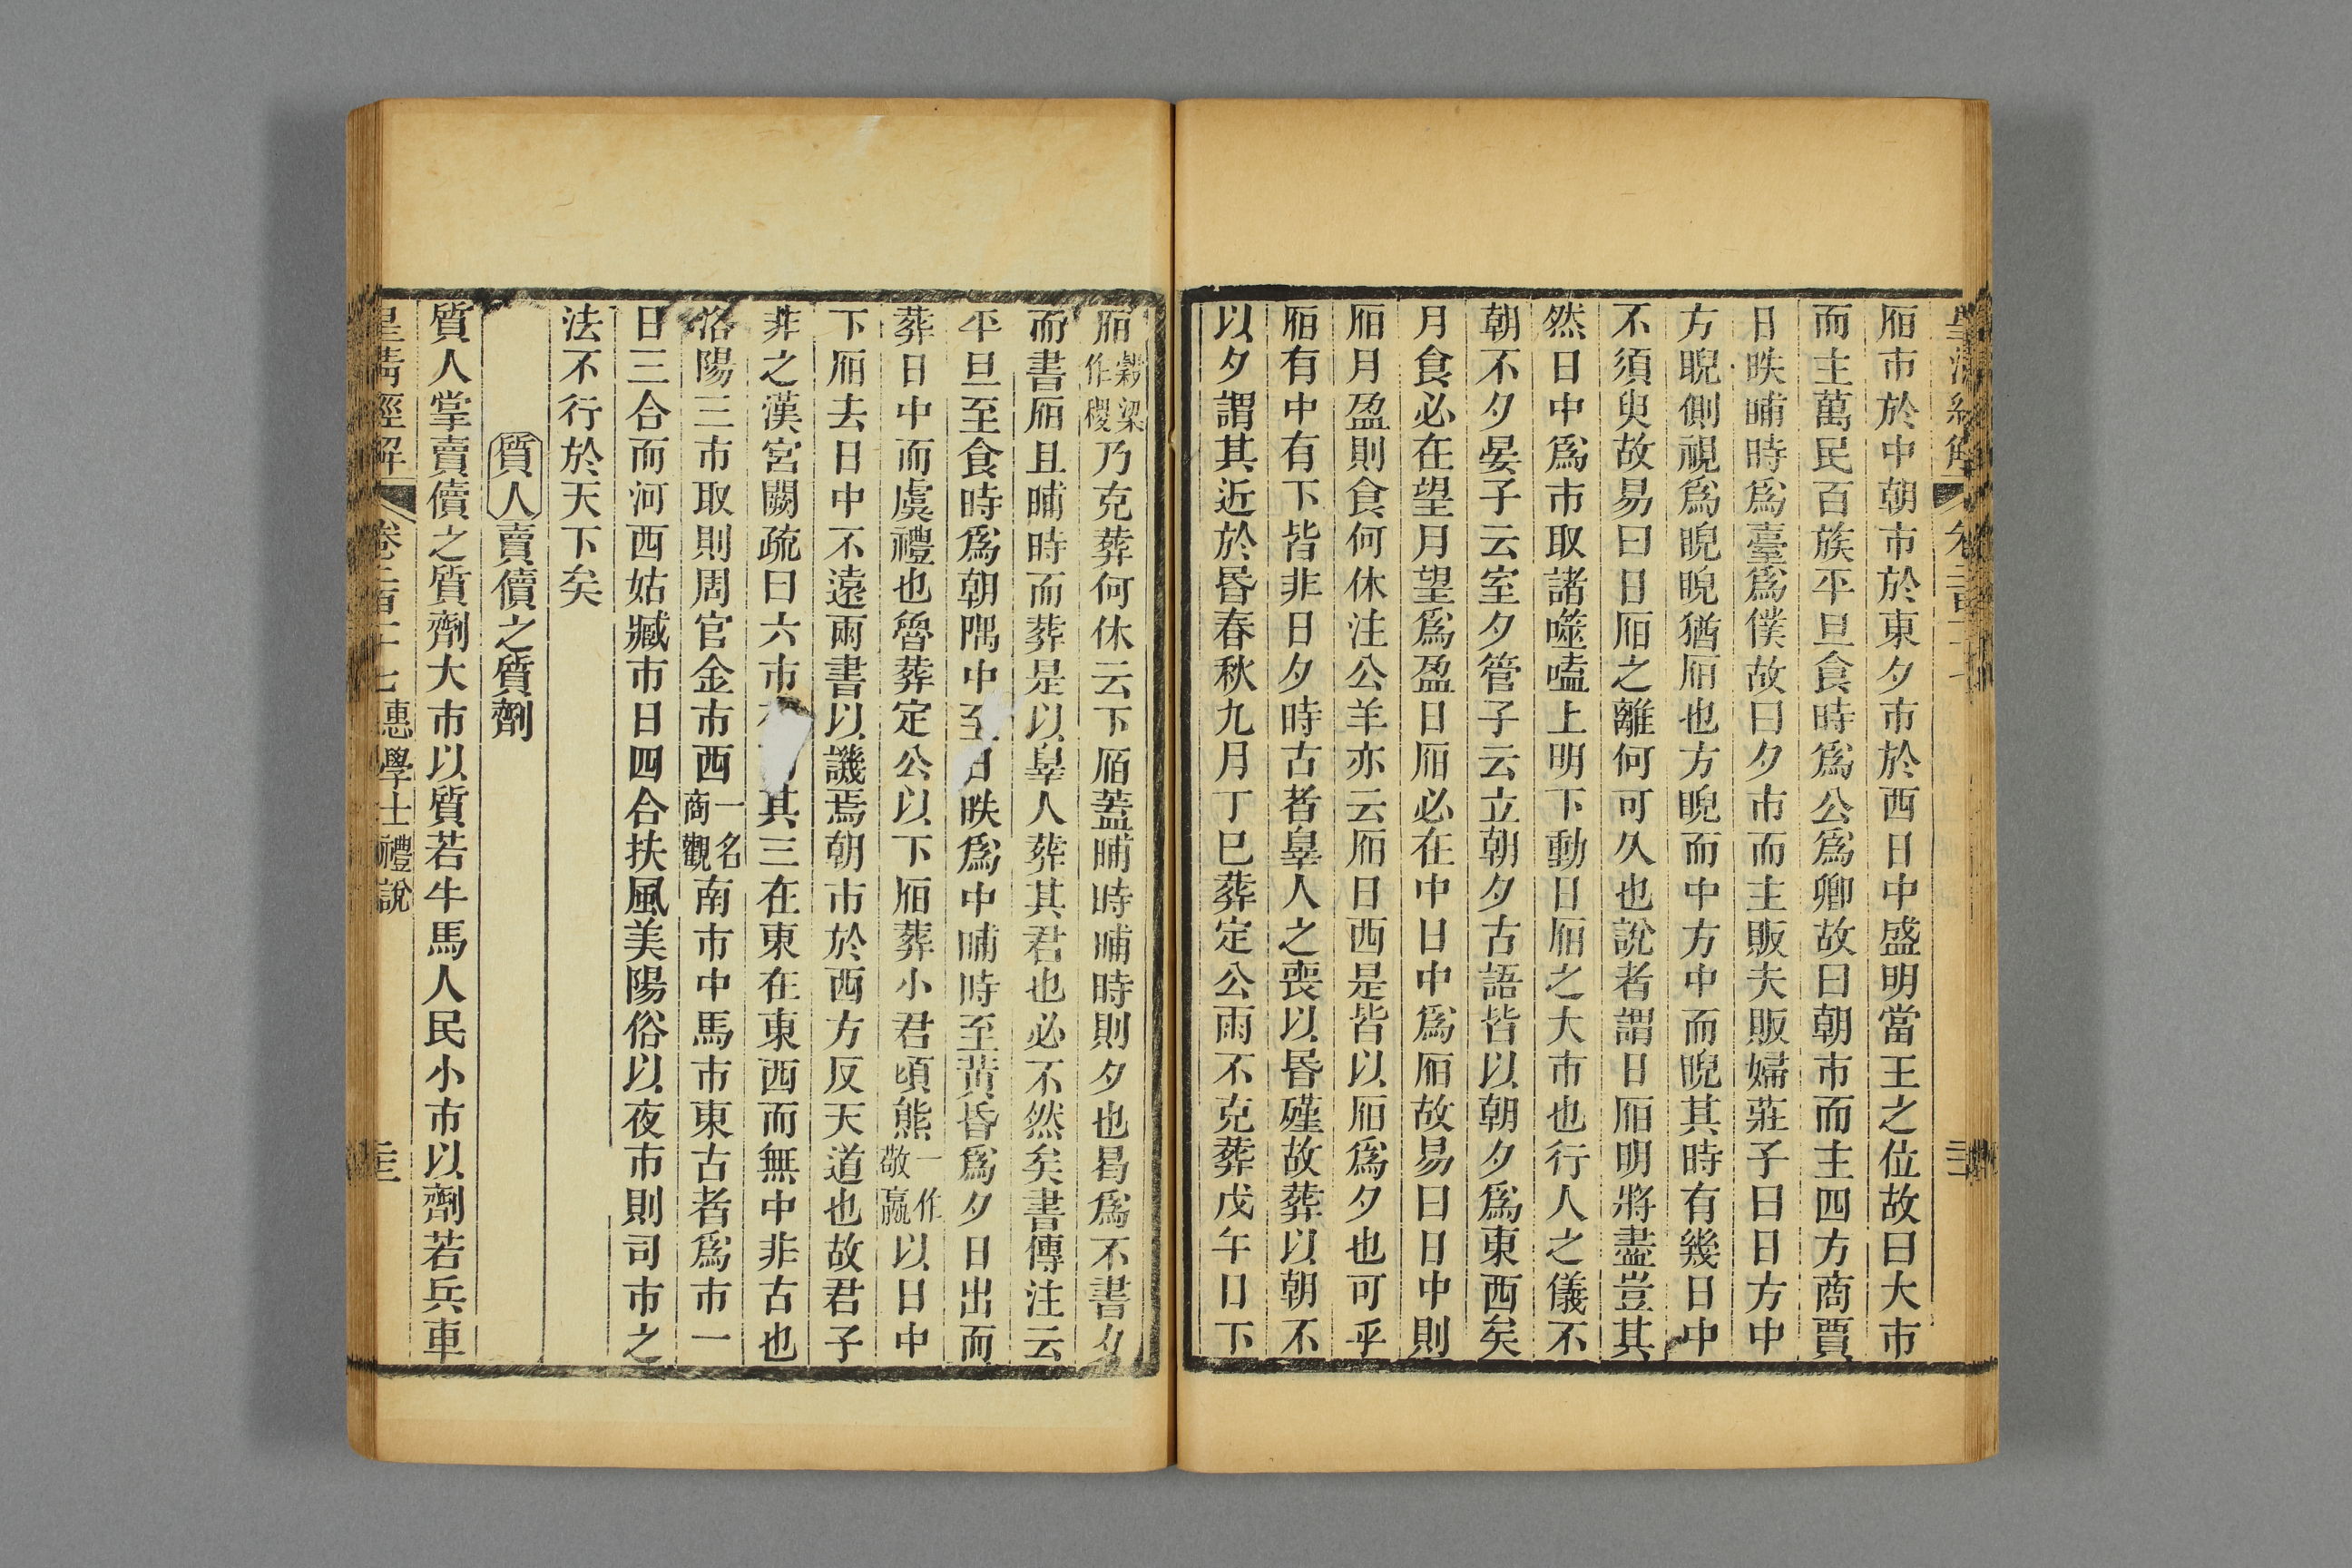 𣅳市於中朝市於東夕市於西日中盛明當王之位故曰大市
而主萬民百族平旦食時爲公爲卿故曰朝市而主四方商賈
日昳晡時爲臺爲僕故曰夕市而主販夫販婦莊子曰日方中
方睨側視爲睨睨猶𣅳也方睨而中方中而睨其時有幾日中
不須臾故易曰日𣅳之離何可久也說者謂日𣅳明將盡豈其
然日中爲市取諸噬嗑上明下動日𣅳之大市也行人之儀不
朝不夕晏子云室夕管子云立朝夕古語皆以朝夕爲東西矣
月食必在望月望爲盈日𣅳必在中日中爲𣅳故易曰日中則
𣅳月盈則食何休注公羊亦云𣅳日西是皆以𣅳爲夕也可乎
𣅳有中有下皆非日夕時古者辠人之喪以昬殣故葬以朝不
以夕謂其近於昬春秋九月丁巳葬定公雨不克葬戊午日下
𣅳穀梁作稷乃克葬何休云下𣅳蓋晡時晡時則夕也曷爲不書夕
而書𣅳且晡時而葬是以辠人葬其君也必不然矣書傳注云
平旦至食時爲朝隅中至日昳爲中晡時至黃昏爲夕日出而
葬日中而虞禮也魯葬定公以下𣅳葬小君頃熊一作敬嬴以日中
下𣅳去日中不遠雨書以譏焉朝市於西方反天道也故君子
非之漢宮闕疏曰六市其三在東在東西而無中非古也
洛陽三市取則周官金市西一名商觀南市中馬市東古者爲市一
日三合而河西姑臧市日四合扶風美陽俗以夜市則司市之
法不行於天下矣
質人賣儥之質劑
質人掌賣儥之質劑大市以質若牛馬人民小市以劑若兵車
皇清經解 卷二百十七 惠學士禮說